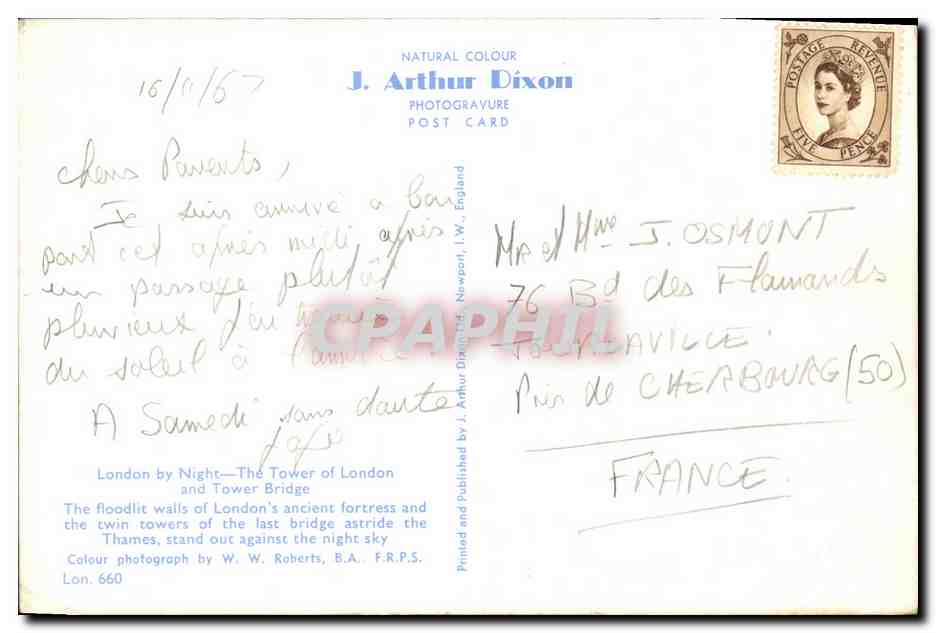 NATURAL COLOUR
J. Arthur Dixon
PHOTOGRAVURE
POST CARD
POSTAGE REVENUE
FIVE PENCE
16/11/67
chers Parents,
Je suis arrivé à bon
port cet après midi, après
un passage plutôt
pluvieux j'ai trouvé
du soleil à l'arrivée
A Samedi sans doute
Mr et Mme J. OSMONT
76 Bd des Flamands
TOURLAVILLE.
Près de CHERBOURG (50)
FRANCE.
CPAPHIL
Printed and Published by J. Arthur Dixon Ltd., Newport, I.W., England
London by Night—The Tower of London
and Tower Bridge
The floodlit walls of London's ancient fortress and
the twin towers of the last bridge astride the
Thames, stand out against the night sky
Colour photograph by W. W. Roberts, B.A., F.R.P.S.
Lon. 660